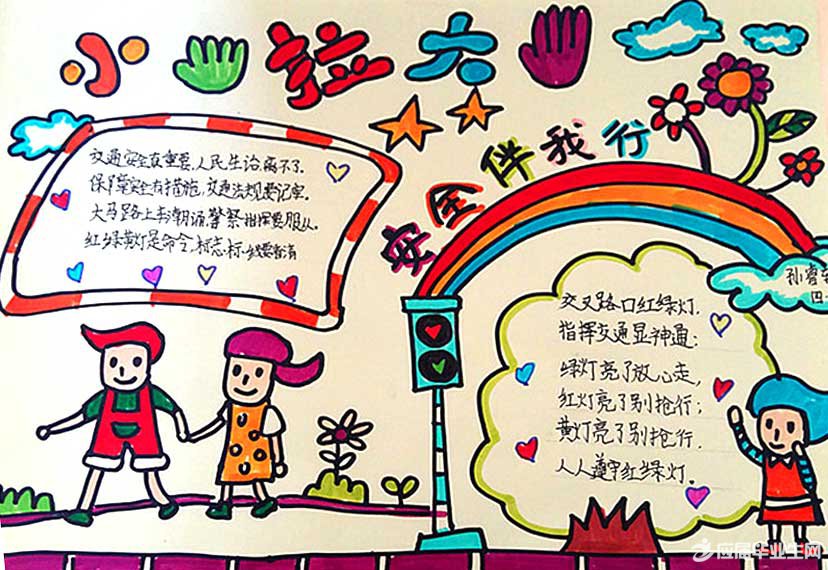 小拉大
安全伴我行
交通安全真重要,人民生活离不了.
保障安全有措施,交通法规要记牢.
大马路上车潮涌,警察指挥要服从.
红绿黄灯是命令,标志标线要看清
交叉路口红绿灯.
指挥交通显神通:
绿灯亮了放心走,
红灯亮了别抢行;
黄灯亮了别抢行.
人人遵守红绿灯.
孙睿
四
应届毕业生网